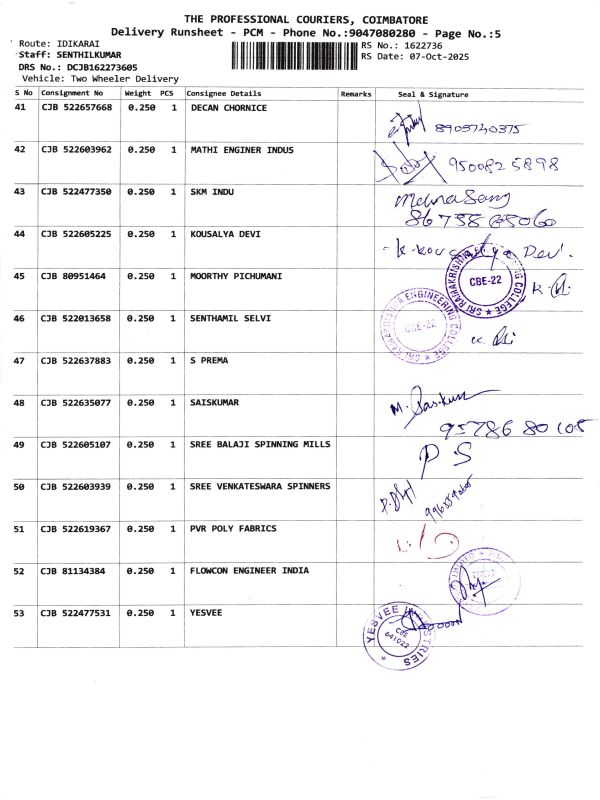 THE PROFESSIONAL COURIERS, COIMBATORE
Delivery Runsheet - PCM - Phone No.:9047080280 - Page No.:5
Route: IDIKARAI
RS No.: 1622736
Staff: SENTHILKUMAR
RS Date: 07-Oct-2025
DRS No.: DCJB162273605
Vehicle: Two Wheeler Delivery
S No Consignment No Weight PCS Consignee Details Remarks Seal & Signature
41 CJB 522657668 0.250 1 DECAN CHORNICE
8903740375
42 CJB 522603962 0.250 1 MATHI ENGINER INDUS
9500825898
43 CJB 522477350 0.250 1 SKM INDU
44 CJB 522605225 0.250 1 KOUSALYA DEVI
Devi
45 CJB 80951464 0.250 1 MOORTHY PICHUMANI
SRI RAMAKRISHNA ENGINEERING COLLEGE
CBE-22
46 CJB 522013658 0.250 1 SENTHAMIL SELVI
SRI RAMAKRISHNA ENGINEERING COLLEGE
CBE-22
47 CJB 522637883 0.250 1 S PREMA
48 CJB 522635077 0.250 1 SAISKUMAR
49 CJB 522605107 0.250 1 SREE BALAJI SPINNING MILLS
P S
50 CJB 522603939 0.250 1 SREE VENKATESWARA SPINNERS
51 CJB 522619367 0.250 1 PVR POLY FABRICS
52 CJB 81134384 0.250 1 FLOWCON ENGINEER INDIA
53 CJB 522477531 0.250 1 YESVEE
YESVEE INDUSTRIES
CBE
641022